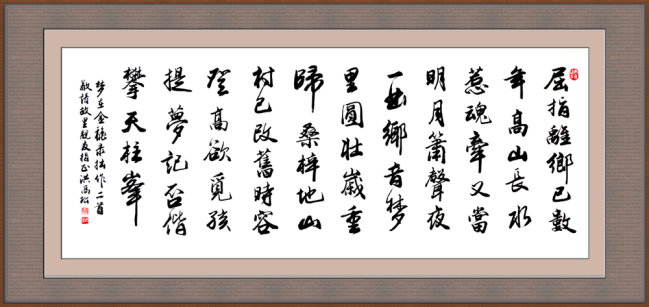 屈指離鄉已數
年高山長水
惹魂牽又當
明月簫聲夜
一曲鄉音夢
里圓壯歲重
歸桑梓地山
村已改舊時容
登高欲覓孩
提夢記否偕
攀天柱峯
拙作二首
敬請故里親友指正洪